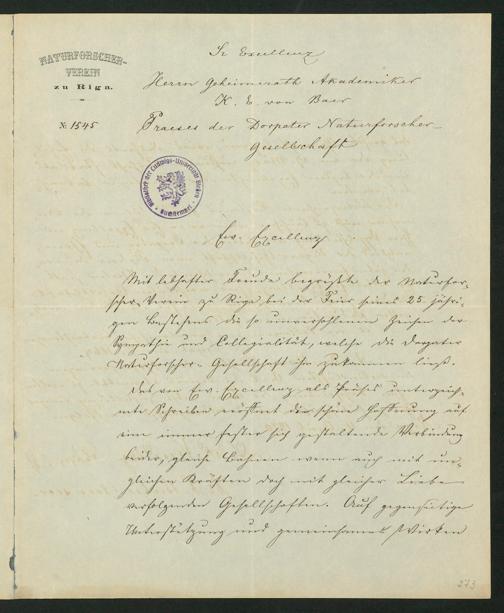 NATURFORSCHER-
VEREIN
zu Riga.
№ 1545
Sr Excellenz
Herrn Geheimrath Akademiker
K. E. von Baer
Praeses der Dorpater Naturforscher-
Gesellschaft
Bibliothek der Ludwigs-Universität Giessen
Ew. Excellenz
Mit lebhafter Freude begrüßte der Naturfor-
scher-Verein zu Riga bei der Feier seines 25 jähri-
gen Bestehens die so unverhohlenen Zeichen der
Sympathie und Collegialität, welche die Dorpater
Naturforscher-Gesellschaft ihm zukommen ließ.
Das von Ew. Excellenz als Präses unterzeich-
nete Schreiben eröffnet die schöne Hoffnung auf
eine immer fester sich gestaltende Verbindung
beider, gleiche Bahnen wenn auch mit un-
gleichen Kräften doch mit gleicher Liebe
verfolgenden Gesellschaften. Auf gegenseitige
Unterstützung und gemeinsames Wirken
273